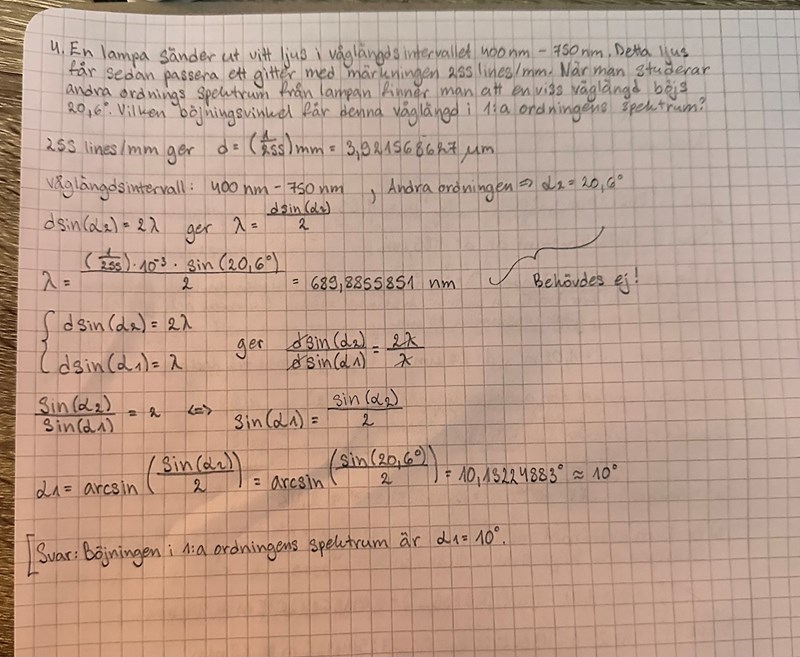 4. En lampa sänder ut vitt ljus i våglängdsintervallet 400 nm - 750 nm. Detta ljus
får sedan passera ett gitter med märkningen 255 lines/mm. När man studerar
andra ordnings spektrum från lampan finner man att en viss våglängd böjs
20,6°. Vilken böjningsvinkel får denna våglängd i 1:a ordningens spektrum?
255 lines/mm ger d = (1/255) mm = 3,921568627 μm
våglängdsintervall: 400 nm - 750 nm , Andra ordningen ⇒ α2 = 20,6°
dsin(α2) = 2λ ger λ = dsin(α2)/2
λ = (1/255)·10⁻³ · sin(20,6°)/2 = 689,8855851 nm Behövdes ej!
{ dsin(α2) = 2λ
dsin(α1) = λ ger dsin(α2)/dsin(α1) = 2λ/λ
sin(α2)/sin(α1) = 2 ⇔ sin(α1) = sin(α2)/2
α1 = arcsin (sin(α2)/2) = arcsin (sin(20,6°)/2) = 10,13224883° ≈ 10°
[Svar: Böjningen i 1:a ordningens spektrum är α1 = 10°.